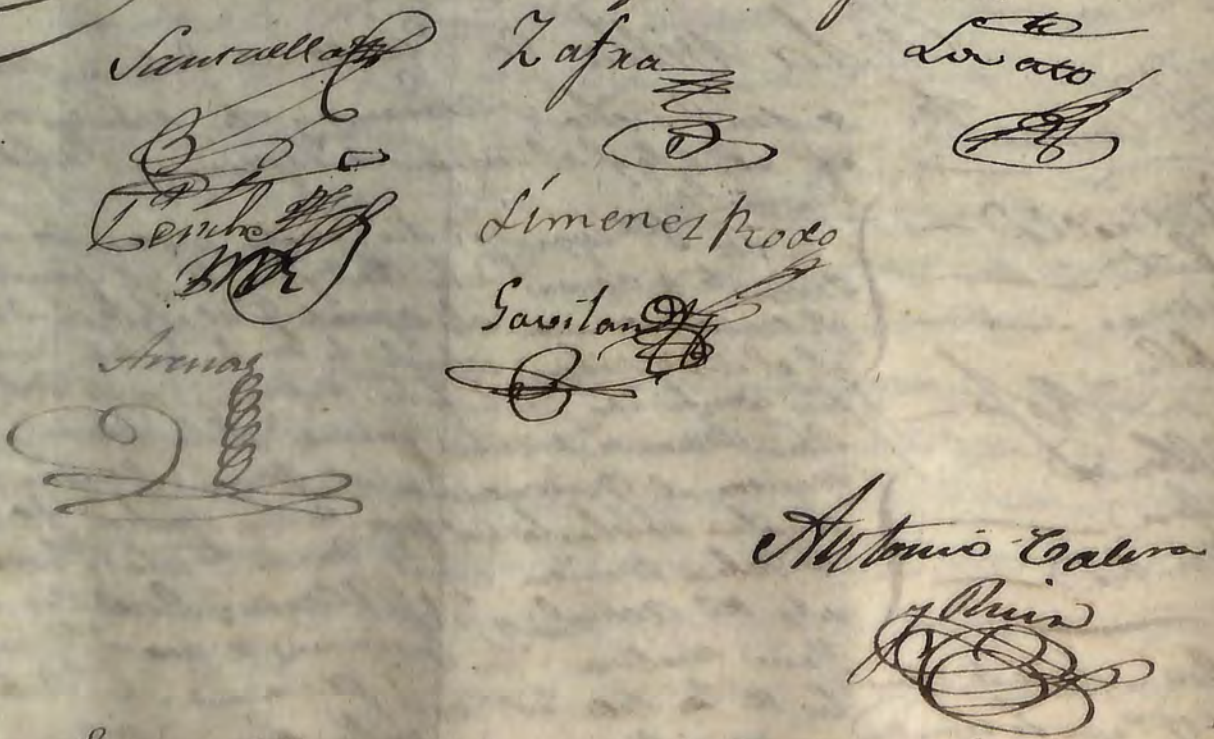 Santaella Zafra Lovato
Ximenez Rodo
Gavilan
Arenas
Antonio Calera
y Ruiz